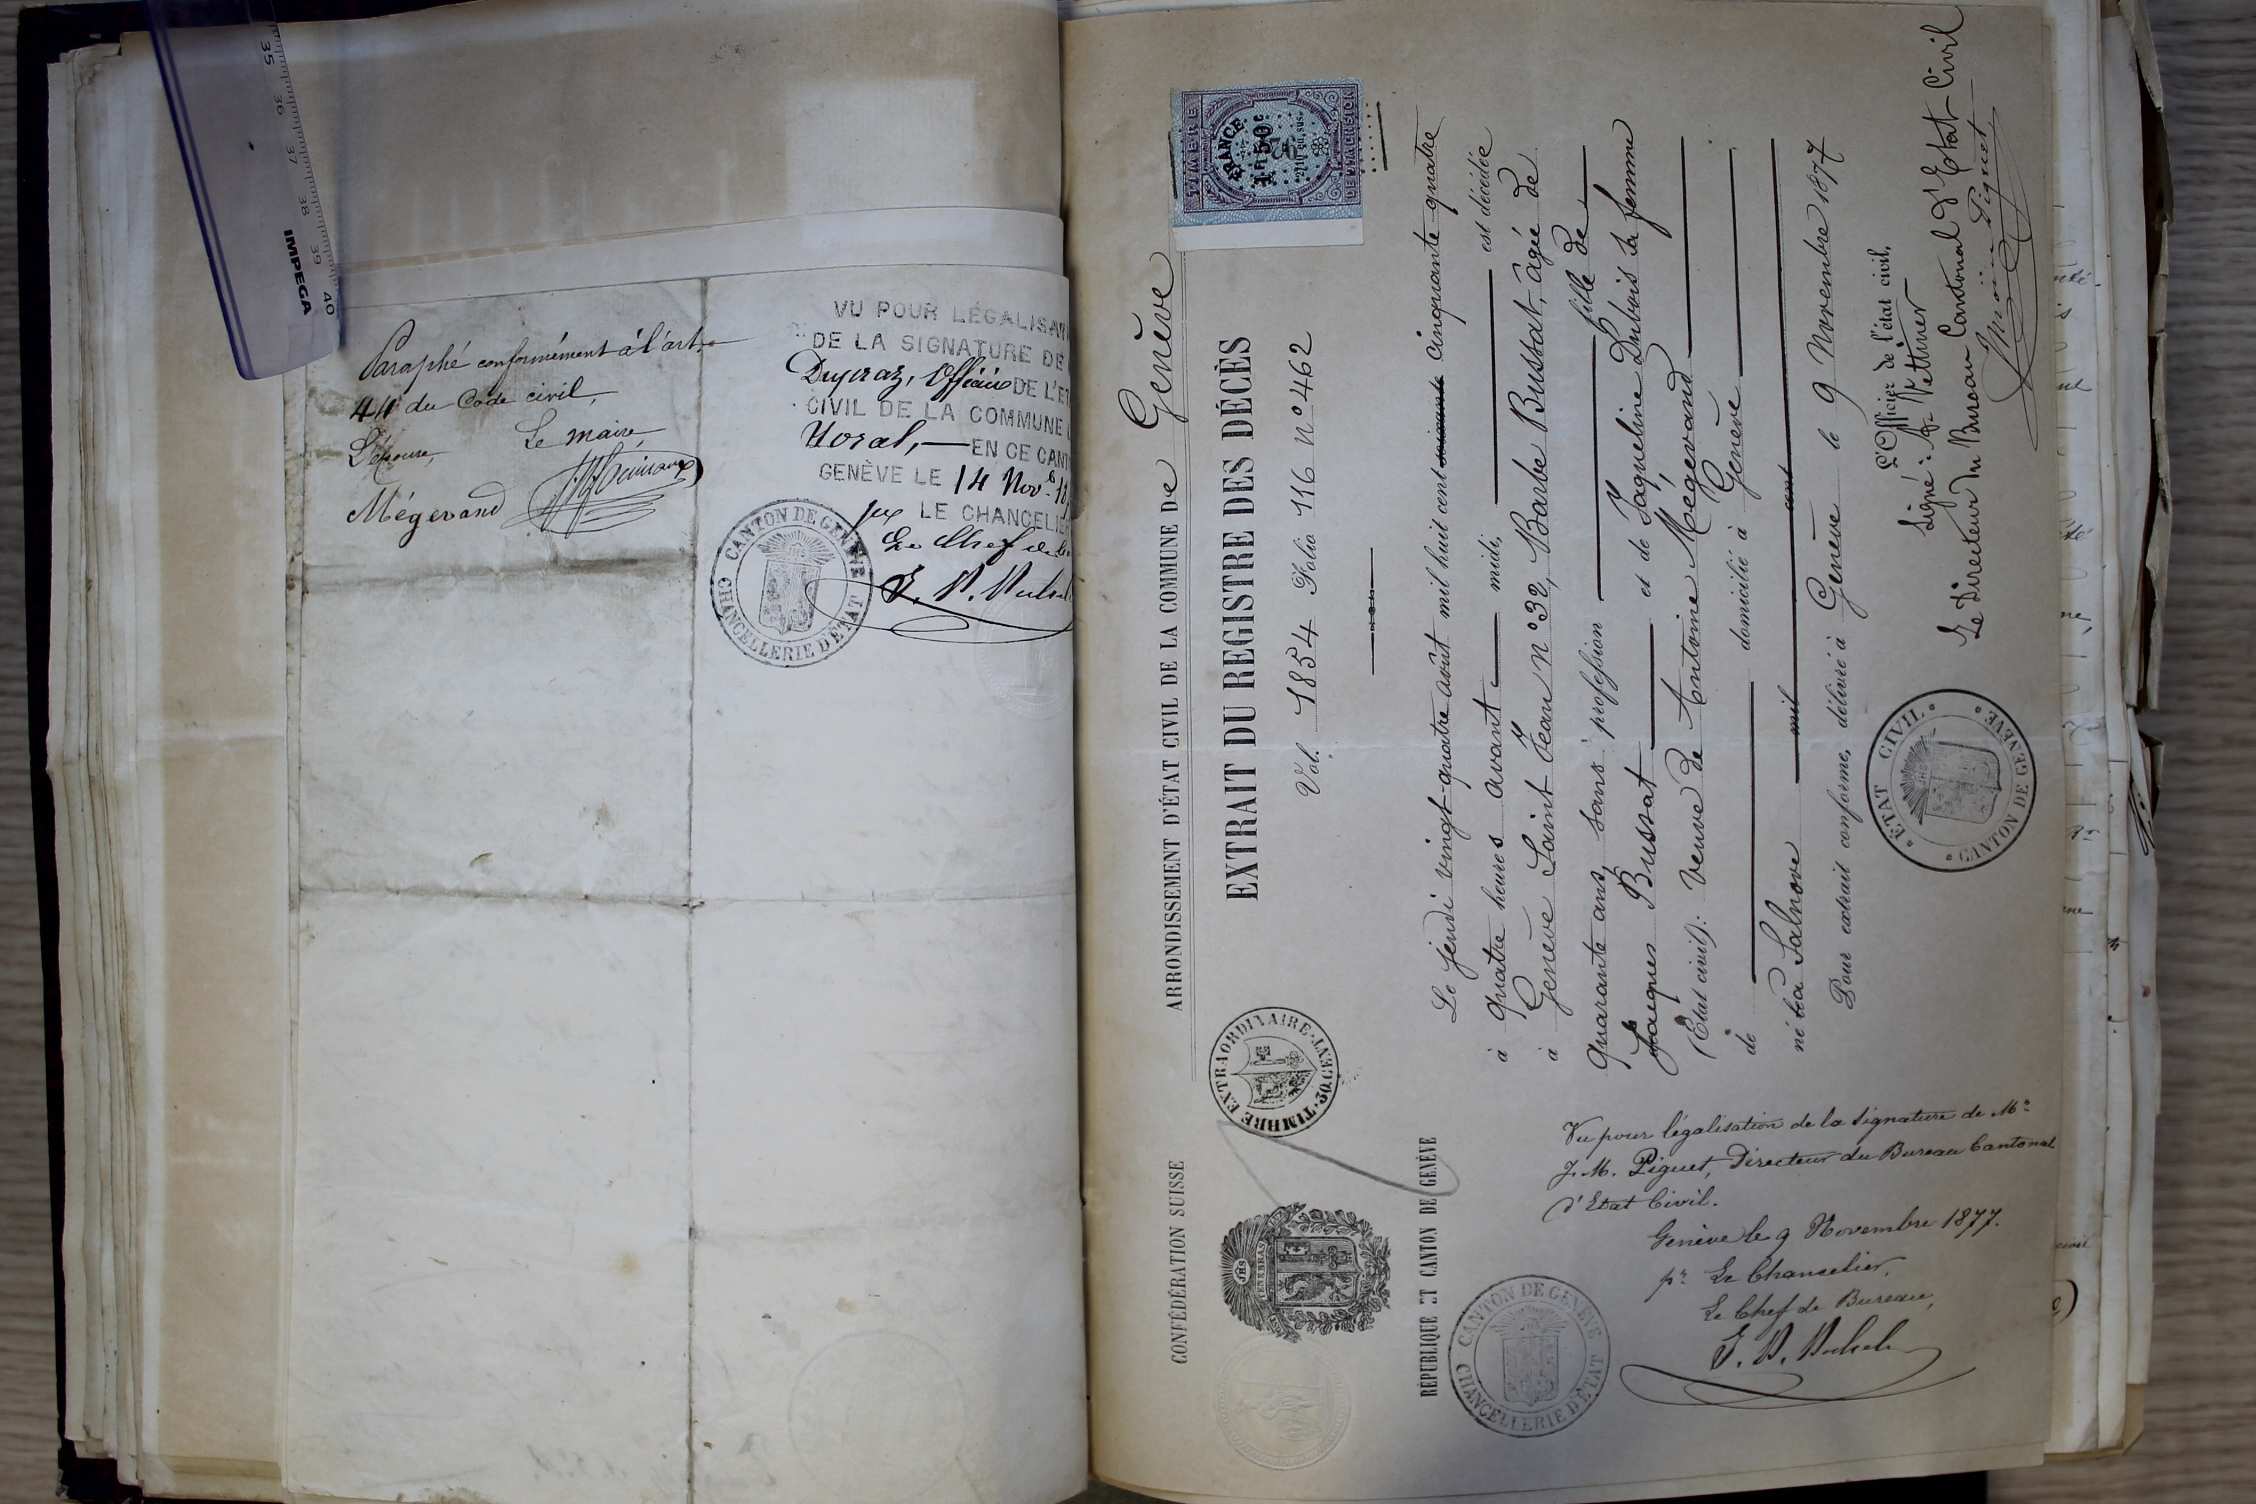 35 36 37 38 39 40
IMPEGA
Paraphé conformément à l'art.
44 du Code civil,
L'épouse, Le maire,
Mégevand
VU POUR LÉGALISA
DE LA SIGNATURE DE
Dupraz, Officier DE L'ÉT
CIVIL DE LA COMMUNE
EN CE CANT
GENÈVE LE 14 Nov.
LE CHANCELIE
Le Chef de
CANTON DE GENÈVE
CHANCELLERIE D'ÉTAT
CONFÉDÉRATION SUISSE
ARRONDISSEMENT D'ÉTAT CIVIL DE LA COMMUNE DE Genève
RÉPUBLIQUE ET CANTON DE GENÈVE
TIMBRE EXTRAORDINAIRE
30 CENT.
TIMBRE
FRANCE
DIMENSION
EXTRAIT DU REGISTRE DES DÉCÈS
Vol. 1854 Folio 116 n° 462
Le jeudi vingt-quatre août mil huit cent cinquante quatre
à quatre heures avant midi, est décédée
à Genève Saint Jean n° 32, Barbe Bussat, âgée de
quarante ans, sans profession fille de
Jaques Bussat et de Jaqueline Dubois sa femme
(État civil): veuve de Antoine Mégevand
de domicilié à Genève
né à Salnove mil cent
Pour extrait conforme, délivré à Genève le 9 Novembre 1877
L'Officier de l'état civil,
Signé: Vettiner
Le Directeur du Bureau Cantonal d'Etat Civil
Piguet
ÉTAT CIVIL
CANTON DE GENÈVE
Vu pour légalisation de la signature de Mr
J. M. Piguet, Directeur du Bureau Cantonal
d'Etat Civil.
Genève le 9 Novembre 1877.
pr Le Chancelier,
Le Chef de Bureau,
CANTON DE GENÈVE
CHANCELLERIE D'ÉTAT